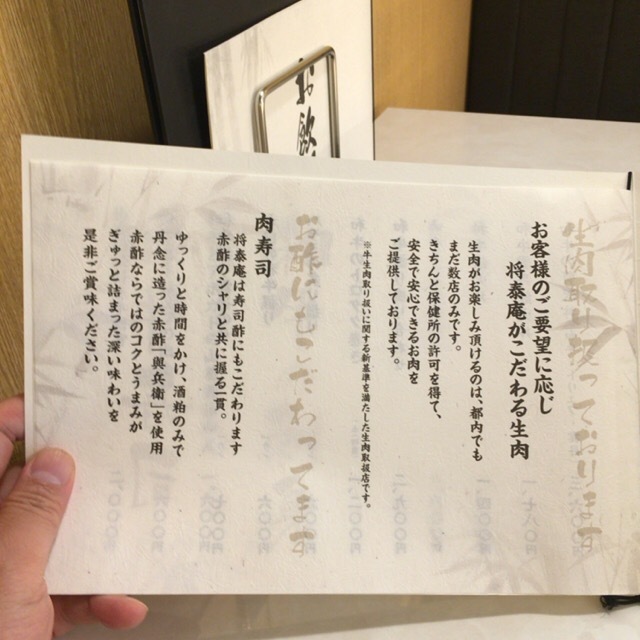 生肉取り扱っております
お客様のご要望に応じ
将泰庵がこだわる生肉
生肉がお楽しみ頂けるのは、都内でも
まだ数店のみです。
きちんと保健所の許可を得て、
安全で安心できるお肉を
ご提供しております。
※牛生肉取り扱いに関する新基準を満たした生肉取扱店です。
お酢にもこだわってます
肉寿司
将泰庵は寿司酢にもこだわります
赤酢のシャリと共に握る一貫。
ゆっくりと時間をかけ、酒粕のみで
丹念に造った赤酢「與兵衛」を使用
赤酢ならではのコクとうまみが
ぎゅっと詰まった深い味わいを
是非ご賞味ください。
お飲